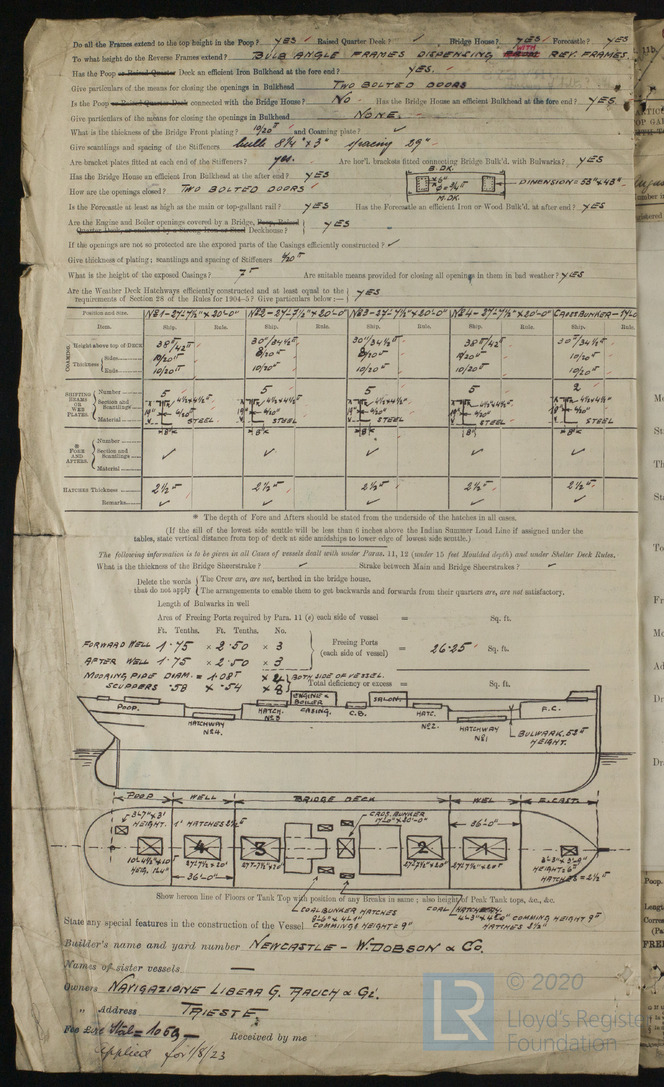 Do all the Frames extend to the top height in the Poop? YES Raised Quarter Deck? ✓ Bridge House? YES Forecastle? YES
To what height do the Reverse Frames extend? BULB ANGLE FRAMES DISPENSING WITH REV. FRAMES
Has the Poop or Raised Quarter Deck an efficient Iron Bulkhead at the fore end? YES.
Give particulars of the means for closing the openings in Bulkhead TWO BOLTED DOORS
Is the Poop or Raised Quarter Deck connected with the Bridge House? NO. Has the Bridge House an efficient Bulkhead at the fore end? YES.
Give particulars of the means for closing the openings in Bulkhead NONE.
What is the thickness of the Bridge Front plating? 10/20" and Coaming plate? ✓
Give scantlings and spacing of the Stiffeners bulb 8¼" × 3" spacing 29"
Are bracket plates fitted at each end of the Stiffeners? yes. Are hor'l. brackets fitted connecting Bridge Bulk'd. with Bulwarks? YES
Has the Bridge House an efficient Iron Bulkhead at the after end? YES
B. DK.
How are the openings closed? TWO BOLTED DOORS
DIMENSION = 53" × 48"
M. DK.
Is the Forecastle at least as high as the main or top-gallant rail? YES Has the Forecastle an efficient Iron or Wood Bulk'd. at after end? YES
Are the Engine and Boiler openings covered by a Bridge, Poop, Raised
Quarter Deck, or enclosed by a Strong Iron or Steel Deckhouse? YES
If the openings are not so protected are the exposed parts of the Casings efficiently constructed? ✓
Give thickness of plating; scantlings and spacing of Stiffeners 6/20"
What is the height of the exposed Casings? Are suitable means provided for closing all openings in them in bad weather? YES
Are the Weather Deck Hatchways efficiently constructed and at least equal to the
requirements of Section 28 of the Rules for 1904-5? Give particulars below:— YES
Position and Size. Nº1-27'-7½" × 20'-0" Nº2-27'-7½" × 20'-0" Nº3-27'-7½" × 20'-0" Nº4-27'-7½" × 20'-0" CROSS BUNKER
Item. Ship. Rule. Ship. Rule. Ship. Rule. Ship. Rule. Ship. Rule.
COAMING Height above top of DECK 38"/42" 30"/34½" 30"/34½" 38"/42" 30"/34½"
Thickness Sides 10/20" 8/20" 8/20" 10/20" 10/20"
Ends 10/20" 10/20" 10/20" 10/20" 10/20"
SHIFTING BEAMS OR WEB PLATES. Number 5 5 5 5 2
Section and Scantlings 4½×4½" 4½×4½" 4½×4½" 4½×4½" 4½×4½"
19" 6/20" 19" 6/20" 19" 6/20" 6/20" 6/20"
Material STEEL STEEL STEEL STEEL STEEL
* FORE AND AFTERS. Number
Section and Scantlings ✓ ✓ ✓ ✓ ✓
Material
HATCHES Thickness 2½" 2½" 2½" 2½" 2½"
Remarks ✓ ✓ ✓ ✓ ✓
* The depth of Fore and Afters should be stated from the underside of the hatches in all cases.
(If the sill of the lowest side scuttle will be less than 6 inches above the Indian Summer Load Line if assigned under the
tables, state vertical distance from top of deck at side amidships to lower edge of lowest side scuttle.)
The following information is to be given in all Cases of vessels dealt with under Paras. 11, 12 (under 15 feet Moulded depth) and under Shelter Deck Rules.
What is the thickness of the Bridge Sheerstrake? ✓ Strake between Main and Bridge Sheerstrakes? ✓
Delete the words that do not apply The Crew are, are not, berthed in the bridge house.
The arrangements to enable them to get backwards and forwards from their quarters are, are not satisfactory.
Length of Bulwarks in well
Area of Freeing Ports required by Para. 11 (e) each side of vessel = Sq. ft.
Ft. Tenths. Ft. Tenths. No.
FORWARD WELL 1·75 × 2·50 × 3
Freeing Ports (each side of vessel) = 26·25 Sq. ft.
AFTER WELL 1·75 × 2·50 × 3
MOORING PIPE DIAM. = 1·08" × 2 BOTH SIDE OF VESSEL.
SCUPPERS ·58 × ·54 × 8 Total deficiency or excess = Sq. ft.
POOP. HATCHWAY Nº4. HATCH. Nº3 ENGINE & BOILER CASING. C.B. SALON. HATC. Nº2. HATCHWAY Nº1 F.C.
BULWARK. 52" HEIGHT.
POOP WELL BRIDGE DECK WEL F. CAST.
3'-7" × 3' HEIGHT. 1' HATCHES 2½" CROS. BUNKER 36'-0"
4 3 2 1
27'-7½ × 20' 27'-7½" × 20' 27'-7½ × 20' 27'-7½" × 20'
36'-0" HEIGHT = 6" HATCHES = 2½"
Show hereon line of Floors or Tank Top with position of any Breaks in same; also height of Peak Tank tops, &c., &c.
COALBUNKER HATCHES COMMINGS HEIGHT = 9"
COAL COMMING HEIGHT 9" HATCHES 2½"
State any special features in the construction of the Vessel
Builder's name and yard number NEWCASTLE - W. DOBSON & CO.
Names of sister vessels —
Owners NAVIGAZIONE LIBERA G. RACICH & Ci.
„ Address TRIESTE
Fee Received by me
Applied for 1/8/23
LR © 2020
Lloyd's Register
Foundation